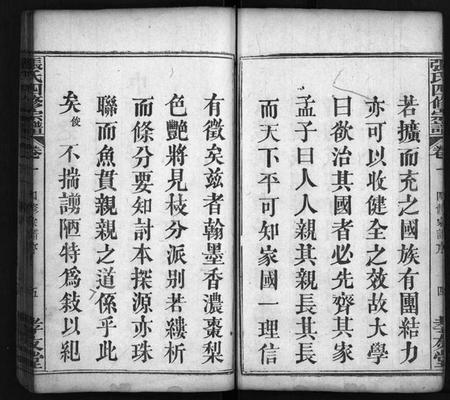 若擴而充之國族有團結力
亦可以收健全之效故大學
曰欲治其國者必先齊其家
孟子曰人人親其親長其長
而天下平可知家國一理信
有徵矣茲者翰墨香濃棗梨
色艷將見枝分派別若縷析
而條分要知討本探源亦珠
聯而魚貫親親之道係乎此
矣俊不揣譾陋特為敍以紀
張氏四修宗譜
卷一
四
孝友堂
張氏四修宗譜
卷一
五
孝友堂